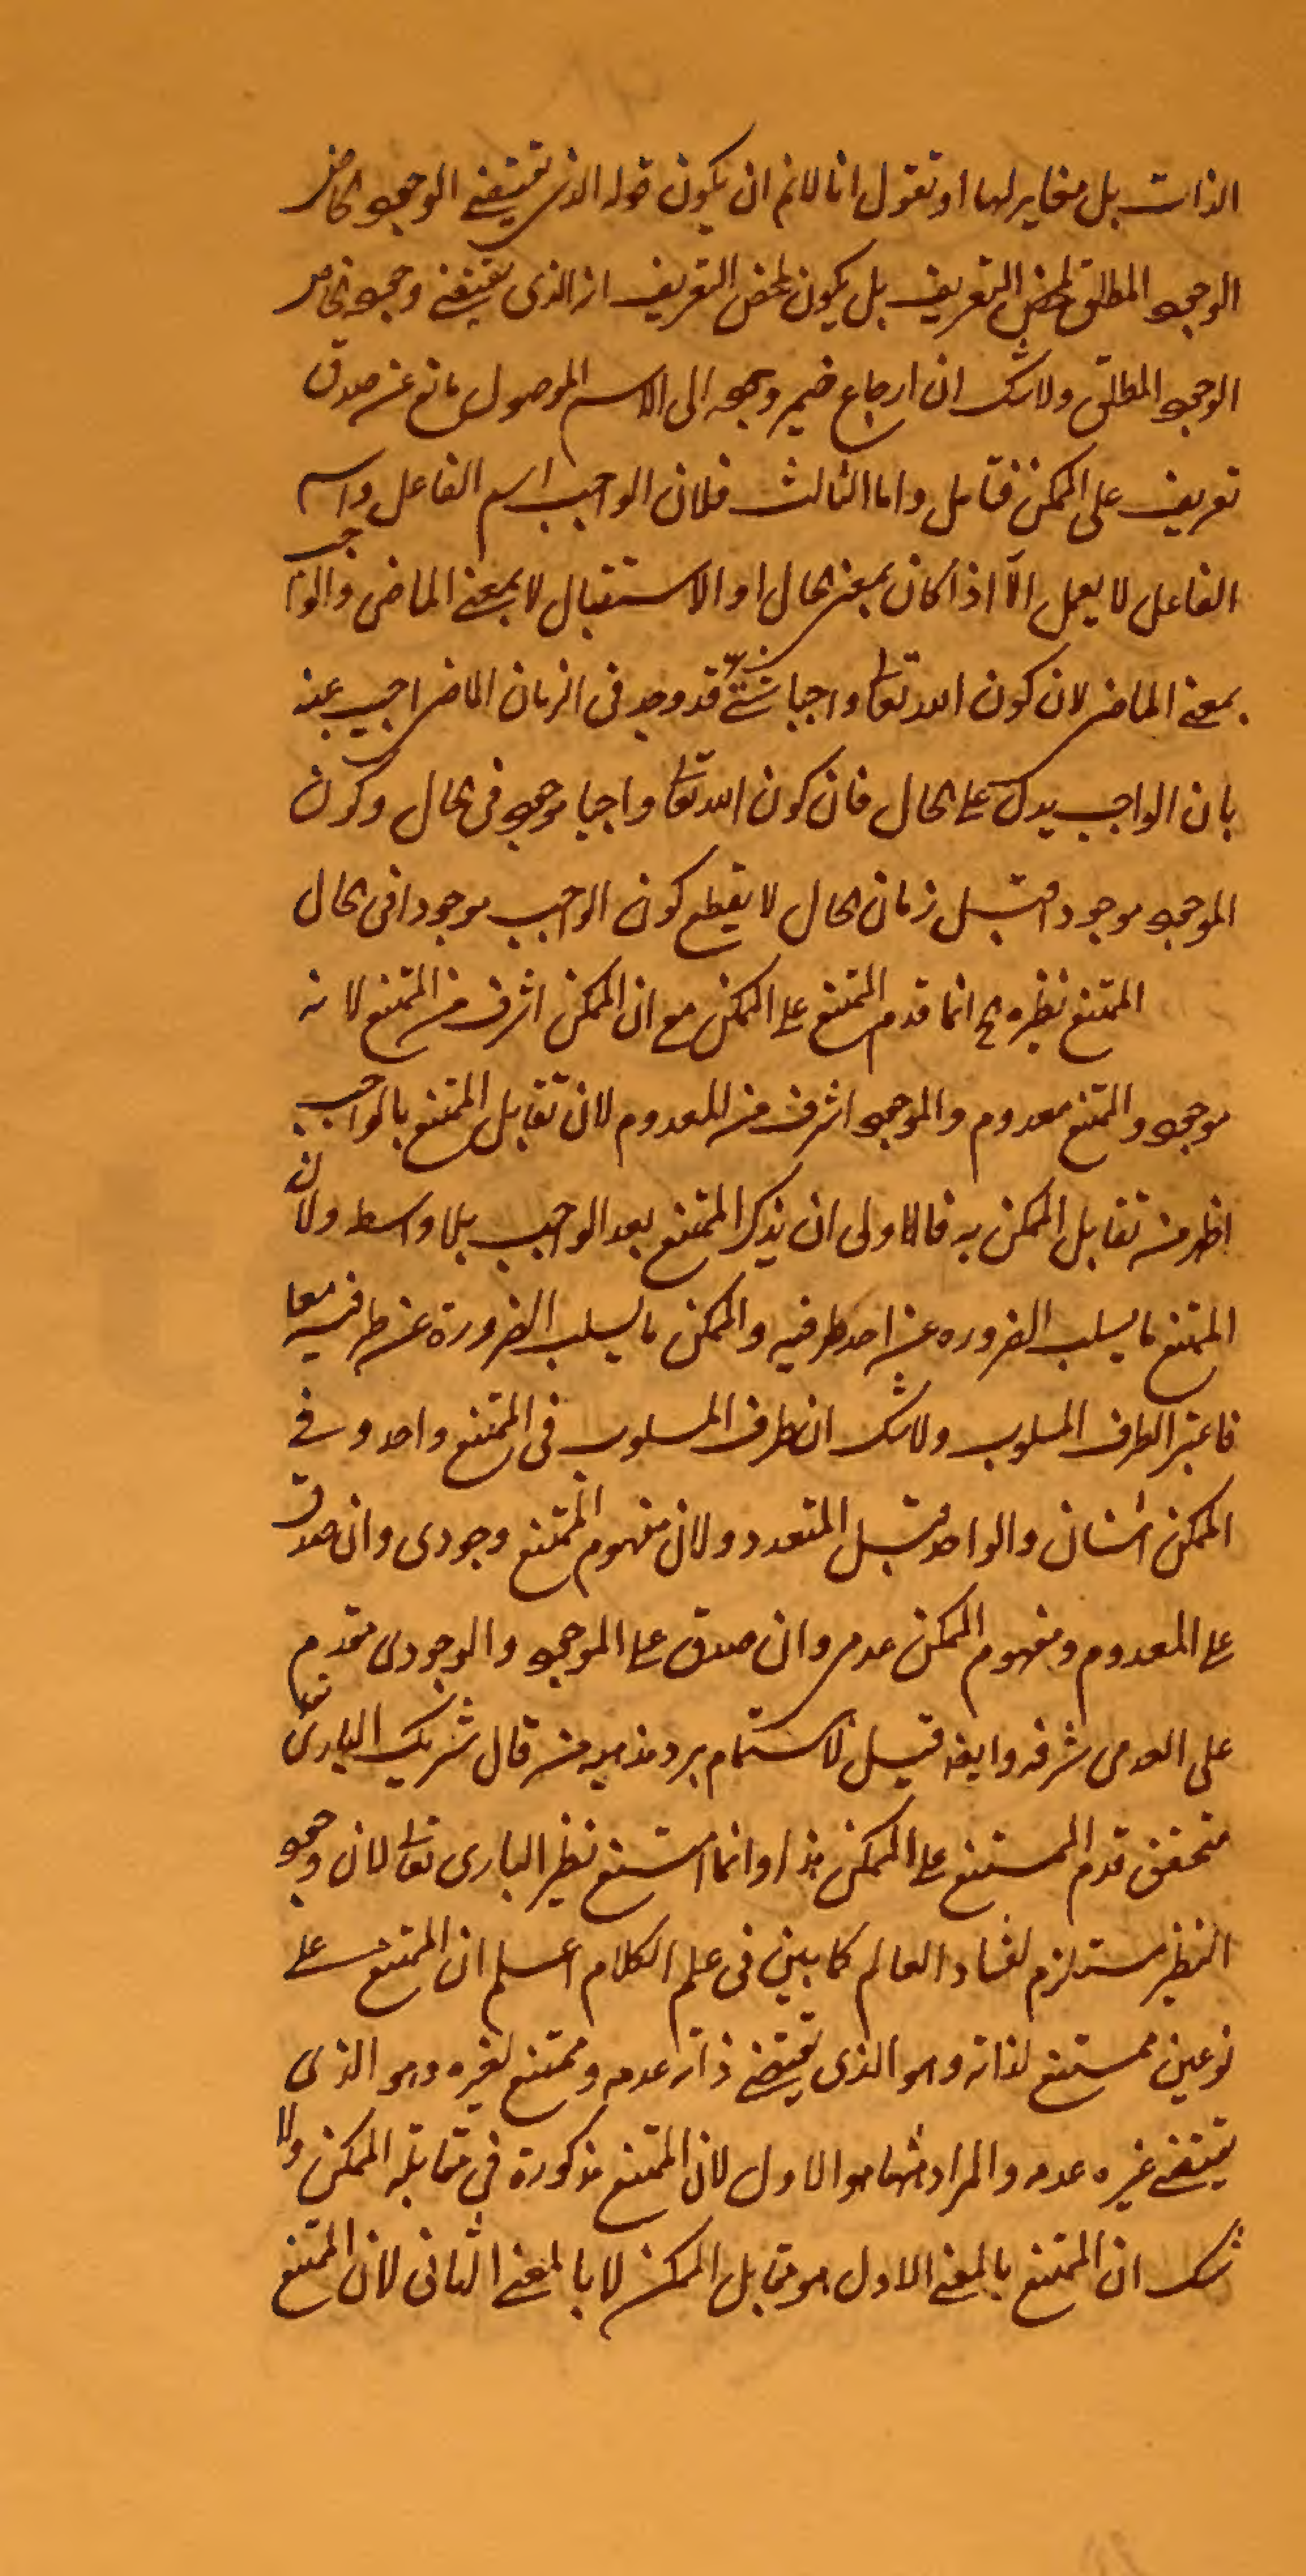 الذات بل مغاير لها او تقول انا لانم ان يكون قوله الذى يقتضى الوجود الخاص
الوجود المطلق لمحض التعريف بل يكون لمحض التعريف از الذى يقتضى وجوده الخاص
الوجود المطلق ولاشك ان ارجاع ضمير وجوده الى الاسم الموصول مانع عن صدق
تعريف على الممكن فتأمل واما الثالث فلان الواجب اسم الفاعل واسم
الفاعل لا يعمل الّا اذا كان بمعنى الحال او الاستقبال لا بمعنى الماضى والواجب
بمعنى الماضى لان كون الله تعا واجبا قد وجد فى الزمان الماضى اجيب عنه
بان الواجب يدل على الحال فان كون الله تعا واجبا موجود فى الحال وكون
الموجود موجودا قبل زمان الحال لا يقطع كون الواجب موجودا فى الحال
الممتنع نظيره انما قدم الممتنع على الممكن مع ان الممكن اشرف من الممتنع لانه
موجود والممتنع معدوم والموجود اشرف من المعدوم لان تقابل الممتنع بالواجب
اظهر من تقابل الممكن به فالاولى ان يذكر الممتنع بعد الواجب بلا واسطه ولان
الممتنع ما يسلب الضروره عن احد طرفيه والممكن ما يسلب الضرورة عن طرفيه معا
فاعتبر الطرف المسلوب ولاشك ان طرف المسلوب فى الممتنع واحد وفى
الممكن اثنان والواحد قبل المتعدد ولان مفهوم الممتنع وجودى وان صدق
على المعدوم ومفهوم الممكن عدمى وان صدق على الموجود والوجودى مقدم
على العدمى شرفه وايضه قيل لاستتمام برد مذهب من قال شريك البارى تعا
متحقق قدم الممتنع على الممكن هذا وانما امتنع نظير البارى تعا لان وجود
النظير مستلزم لفساد العالم كما بين فى علم الكلام اعلم ان الممتنع على
نوعين ممتنع لذاته وهو الذى يقتضى ذاته عدمه وممتنع لغيره وهو الذى
يقتضى غيره عدمه والمراد منهما هو الاول لان الممتنع مذكورة فى مقابلة الممكن ولا
شك ان الممتنع بالمعنى الاول هو مقابل الممكن لا بالمعنى الثانى لان الممتنع